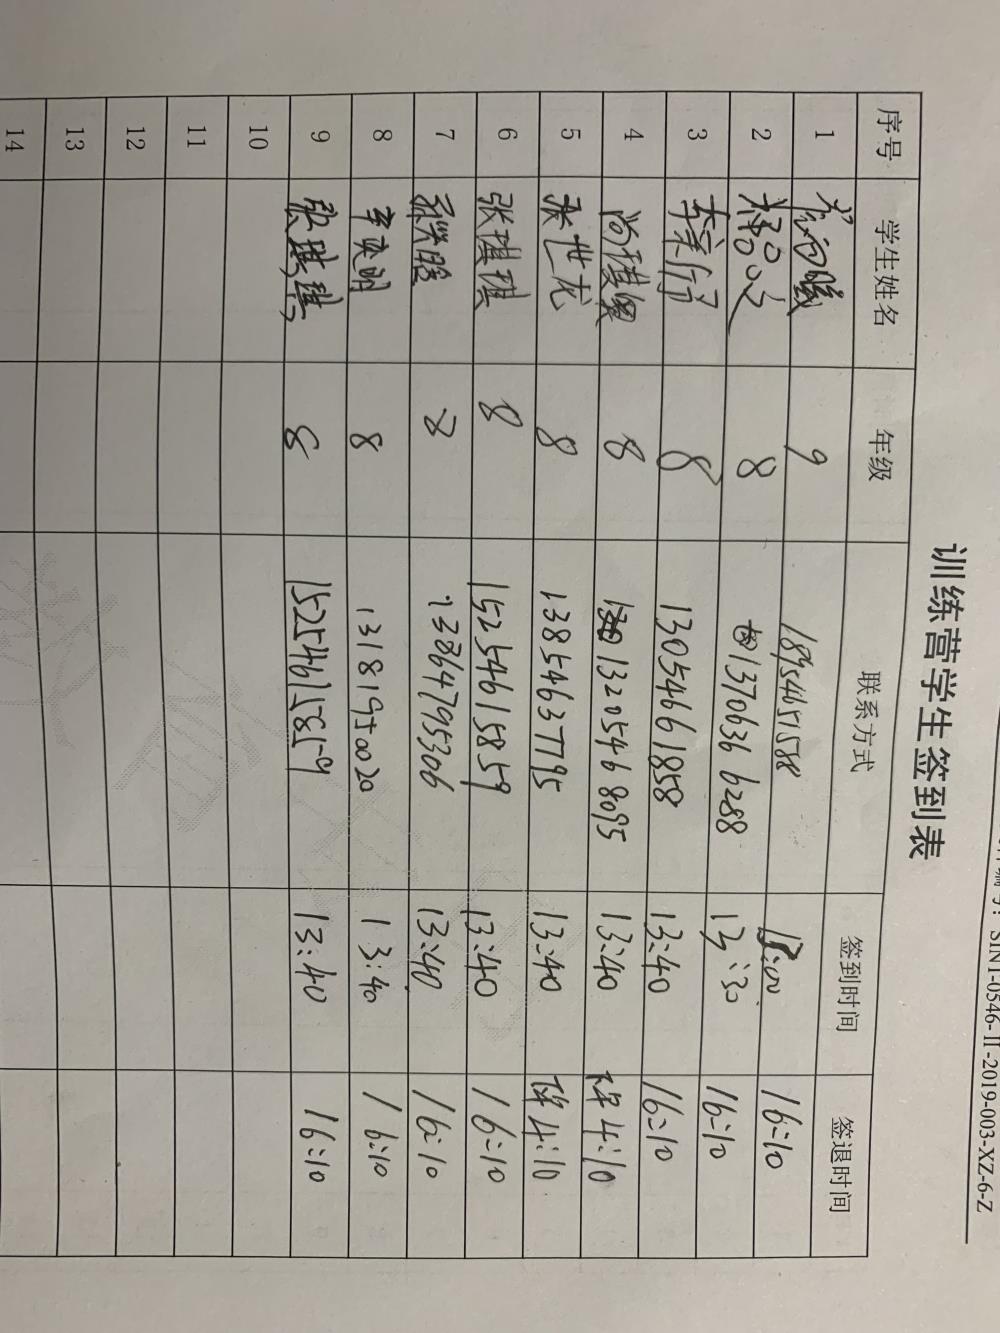 SINT-0546-Ⅱ-2019-003-XZ-6-Z
训练营学生签到表
序号 学生姓名 年级 联系方式 签到时间 签退时间
1 9 18954651588 16:10
2 8 13706366288 13:30 16:10
3 8 13054661858 13:40 16:10
4 8 13205468095 13:40 4:10
5 张世龙 8 13854637795 13:40 4:10
6 张琪琪 8 15254615859 13:40 16:10
7 8 13864795306 13:40 16:10
8 辛奕明 8 13181950020 13:40 16:10
9 张琪琪 8 15254615859 13:40 16:10
10
11
12
13
14